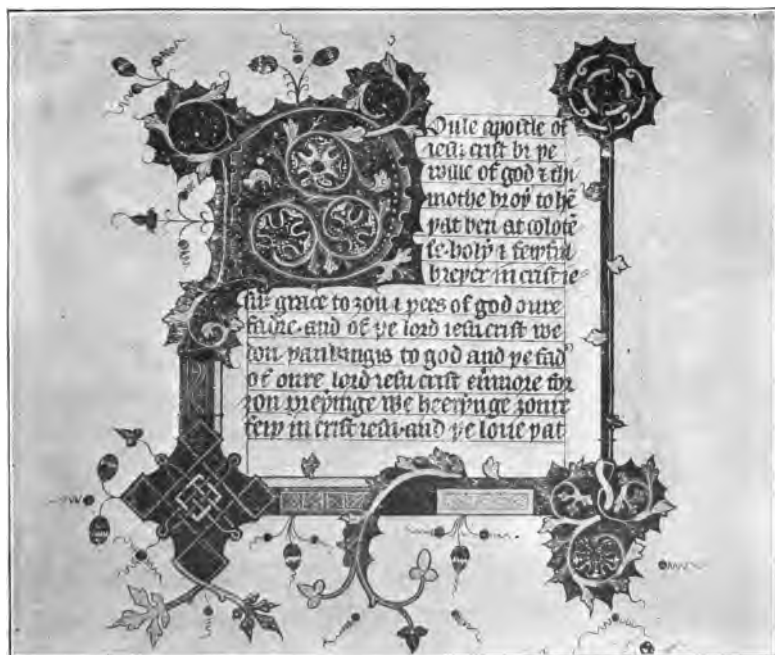 Poule apostle of
iesu crist bi þe
wille of god & thi
mothe broþ̉ to hē
þat ben at colocē
se· holy & feiþful
breþer in crist ie
su· grace to ȝou & pees of god oure
fadir· and of þe lord iesu crist we
don þankingis to god and þe fad̉
of oure lord iesu crist eūmore for
ȝou preiynge we heerynge ȝoure
feiþ in crist iesu· and þe loue þat